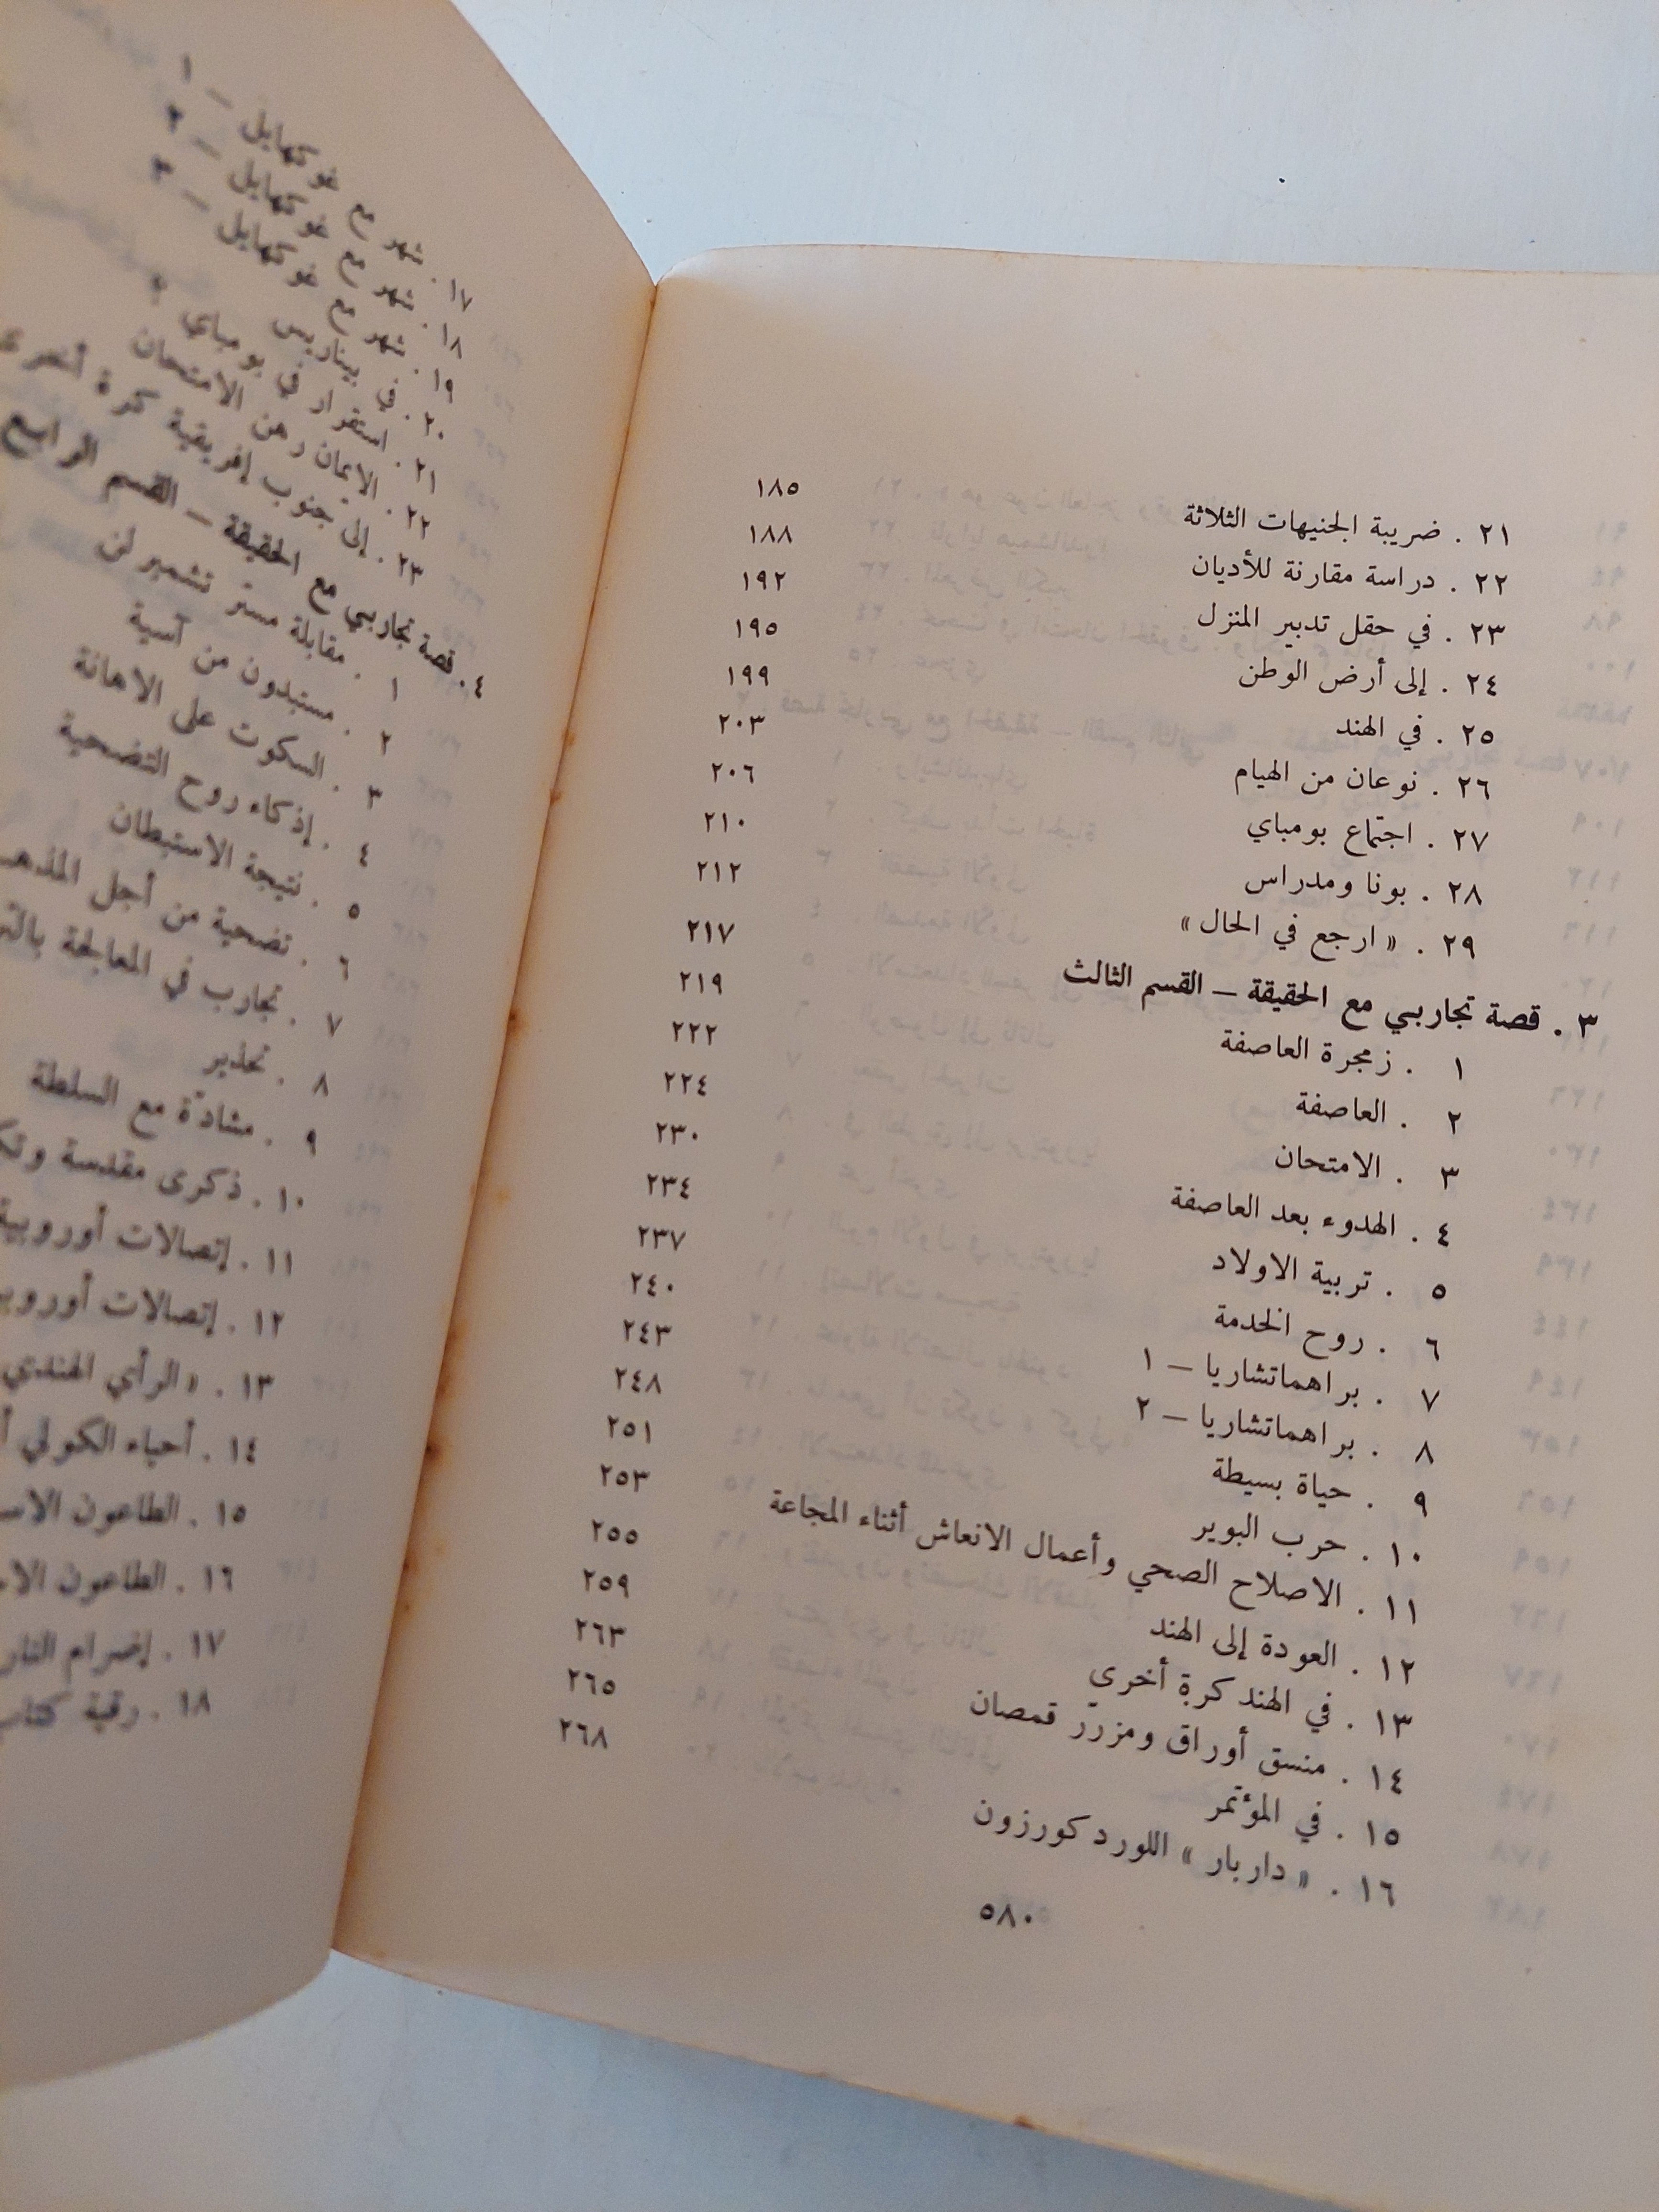 ٢١ . ضريبة الجنيهات الثلاثة ١٨٥
٢٢ . دراسة مقارنة للأديان ١٨٨
٢٣ . في حقل تدبير المنزل ١٩٢
٢٤ . إلى أرض الوطن ١٩٥
٢٥ . في الهند ١٩٩
٢٦ . نوعان من الهيام ٢٠٣
٢٧ . اجتماع بومباي ٢٠٦
٢٨ . بونا ومدراس ٢١٠
٢٩ . « ارجع في الحال » ٢١٢
٣ . قصة تجاربي مع الحقيقة – القسم الثالث ٢١٧
١ . زمجرة العاصفة ٢١٩
٢ . العاصفة ٢٢٢
٣ . الامتحان ٢٢٤
٤ . الهدوء بعد العاصفة ٢٣٠
٥ . تربية الاولاد ٢٣٤
٦ . روح الخدمة ٢٣٧
٧ . براهماتشاريا – ١ ٢٤٠
٨ . براهماتشاريا – ٢ ٢٤٣
٩ . حياة بسيطة ٢٤٨
١٠ . حرب البوير ٢٥١
١١ . الاصلاح الصحي وأعمال الانعاش أثناء المجاعة ٢٥٣
١٢ . العودة إلى الهند ٢٥٥
١٣ . في الهند كرة أخرى ٢٥٩
١٤ . منسق أوراق ومزرّر قمصان ٢٦٣
١٥ . في المؤتمر ٢٦٥
١٦ . « داربار » اللورد كورزون ٢٦٨
٥٨٠
١٧ . شهر مع غوكهايل – ١
١٨ . شهر مع غوكهايل – ٢
١٩ . شهر مع غوكهايل – ٣
٢٠ . في بيناريس
٢١ . استقرار في بومباي ؟
٢٢ . الايمان رهن الامتحان
٢٣ . إلى جنوب إفريقية كرة أخرى
٤ . قصة تجاربي مع الحقيقة – القسم الرابع
١ . مقابلة مستر تشمبرلن
٢ . مستبدون من آسية
٣ . السكوت على الاهانة
٤ . إذكاء روح التضحية
٥ . نتيجة الاستبطان
٦ . تضحية من أجل
٧ . تجارب في المعالجة
٨ . تحذير
٩ . مشادّة مع السلطة
١٠ . ذكرى مقدسة
١١ . إتصالات أوروبية
١٢ . إتصالات
١٣ . « الرأي الهندي
١٤ . أحياء الكولي
١٥ . الطاعون
١٦ . الطاعون
١٧ . إضرام النار
١٨ . رقية كتاب